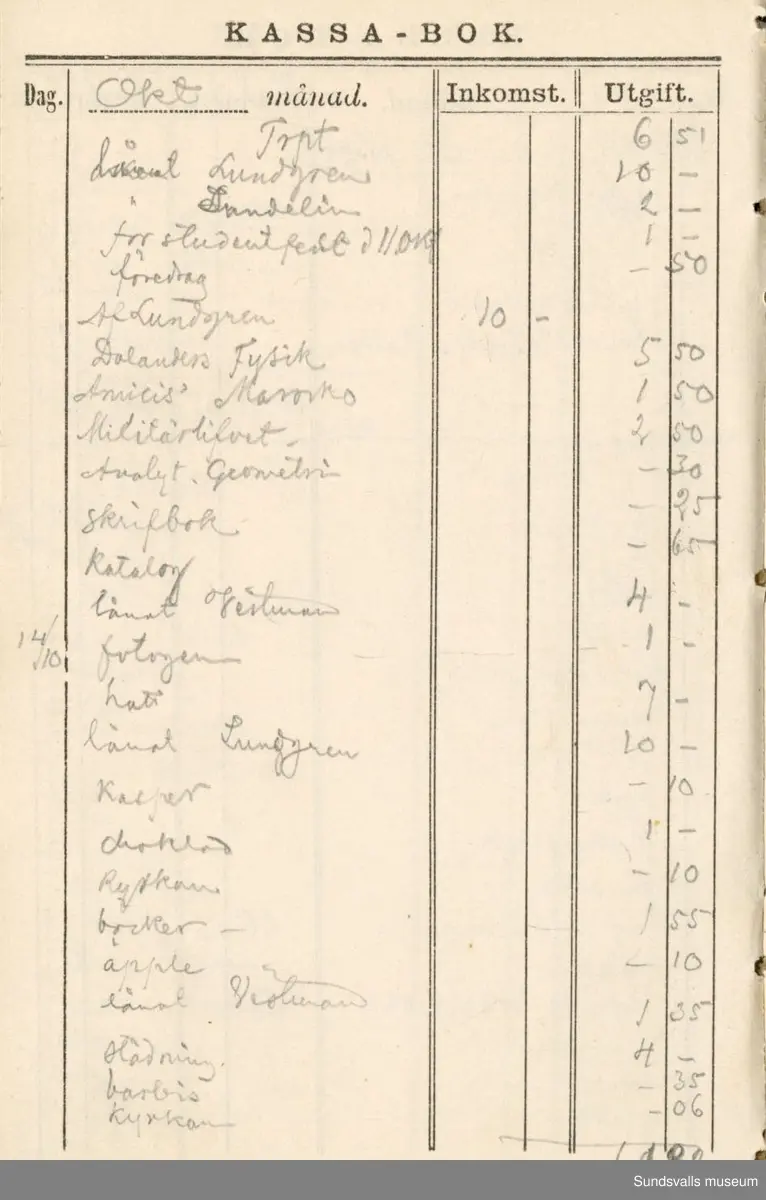 KASSA-BOK.
Dag. Okt månad. Inkomst. Utgift.
Trpt 6 51
Lånat Lundgren 10 -
" Sundelin 2 -
för studentfest d 11 Okt 1 -
föredrag - 50
Af Lundgren 10 -
Dalanders Fysik 5 50
Amicis' Marocko 1 50
Militärlifvet - 2 50
Analyt. Geometri - 30
Skrifbok - 25
Katalog - 65
lånat Vestman 4 -
14/10 fotogen 1 -
hatt 7 -
lånat Lundgren 10 -
Kasper - 10
choklad 1 -
Kyrkan - 10
böcker - 1 55
äpple - 10
lånat Vestman 1 35
städning. 4 -
barbis - 35
Kyrkan - 06
Sundsvalls museum